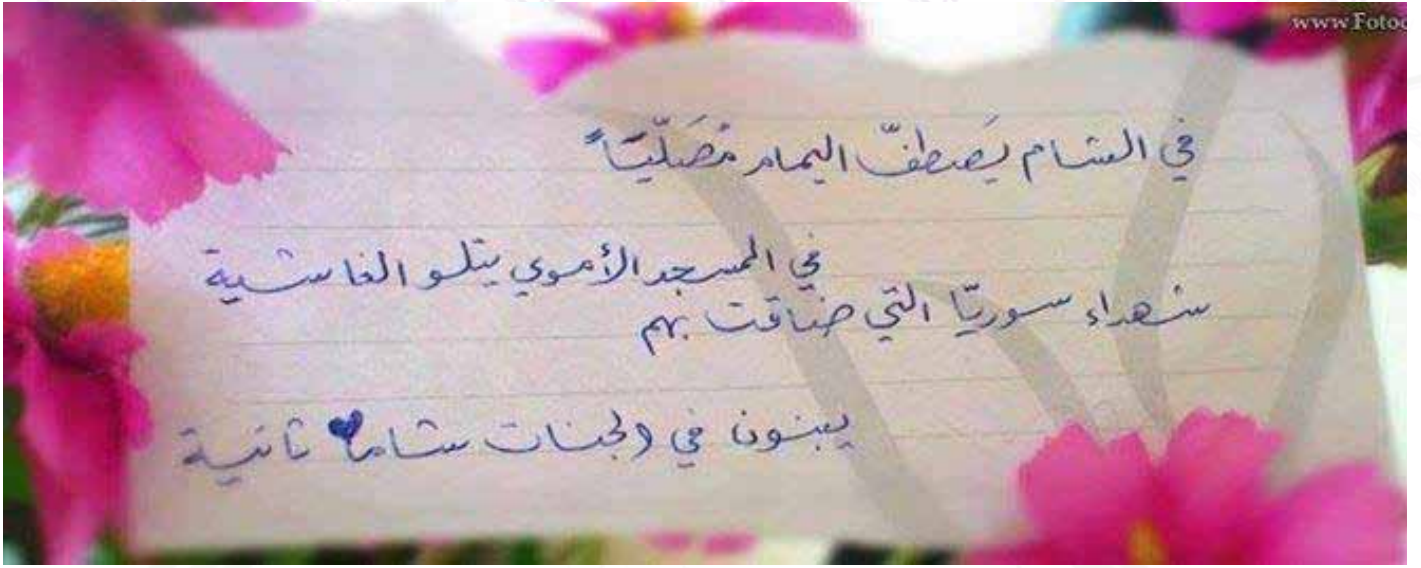 www.Fotoc
في الشام يَصطفّ اليمام مُصَلّيَاً
في المسجد الأموي يتلو الغاشية
شهداء سوريّا التي ضاقت بهم
يبنون في الجنات شاما ثانية